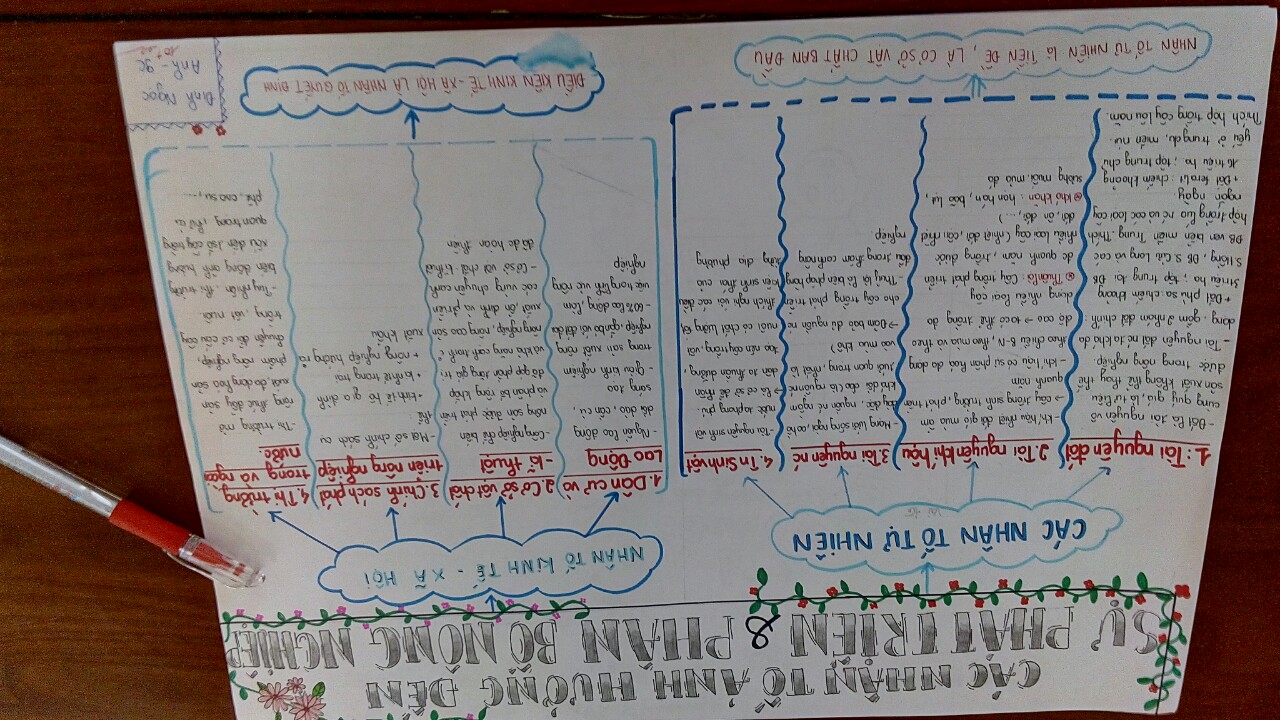 CÁC NHÂN TỐ ẢNH HƯỞNG ĐẾN
SỰ PHÁT TRIỂN & PHÂN BỐ NÔNG NGHIỆP
CÁC NHÂN TỐ TỰ NHIÊN
1. Tài nguyên đất
- Đất là tài nguyên vô
cùng quý giá, là tư liệu
sản xuất không thể thay thế
được trong nông nghiệp.
- Tài nguyên đất nc ta khá đa
dạng, gồm 2 nhóm đất chính:
+ Đất phù sa: chiếm khoảng
3 triệu ha; tập trung tại ĐB
S. Hồng, ĐB S. Cửu Long và các
ĐB ven biển miền Trung. Thích
hợp trồng lúa nc và các loại cây
ngắn ngày
+ Đất feralit: chiếm khoảng
16 triệu ha; tập trung chủ
yếu ở trung du, miền núi.
Thích hợp trồng cây lâu năm.
2. Tài nguyên khí hậu
- Khí hậu nhiệt đới gió mùa ẩm
→ cây trồng sinh trưởng, phát triển
quanh năm
- Khí hậu có sự phân hoá đa dạng
theo chiều B-N, theo mùa và theo
độ cao → ta có thể trồng đa
dạng nhiều loại cây
Thuận lợi: Cây trồng phát triển
đc quanh năm, trồng được
nhiều loại cây (nhiệt đới, cận nhiệt
đới, ôn đới,...)
khó khăn: hạn hán, bão, lụt,
sương muối, mưa đá
3. Tài nguyên nc
Mạng lưới sông ngòi, ao hồ
dày đặc, nguồn nc ngầm
khá dồi dào (là nguồn nc
tưới quan trọng, nhất là
vào mùa khô)
→ Đảm bảo đủ nguồn nc
cho cây trồng phát triển
Thuỷ lợi là biện pháp hàng
đầu trong thâm canh nông
nghiệp
4. Tn Sinh vật
- Tài nguyên sinh vật
nước ta phong phú.
→ là cơ sở để thuần
dần ta thuần dưỡng,
tạo nên cây trồng, vật
nuôi có chất lượng tốt,
thích nghi với các điều
kiện sinh thái của
từng địa phương
NHÂN TỐ TỰ NHIÊN là TIỀN ĐỀ, LÀ CƠ SỞ VẬT CHẤT BAN ĐẦU
NHÂN TỐ KINH TẾ - XÃ HỘI
1. Dân cư và
Lao Động
- Nguồn lao động
dồi dào, cần cù,
sáng tạo
- Giàu kinh nghiệm
trong sản xuất nông
nghiệp, gắn bó với đất đai
- 60% lao động làm
việc trong lĩnh vực nông
nghiệp
2. Cơ sở vật chất
- kĩ thuật
- Công nghiệp chế biến
nông sản được phát triển
và phân bố rộng khắp
- Cơ sở vật chất kĩ thuật
đã dần hoàn thiện
3. Chính sách phát
triển nông nghiệp
- Một số chính sách cụ
thể:
+ kinh tế hộ gia đình
+ kinh tế trang trại
+ nông nghiệp hướng ra
xuất khẩu
4. Thị trường
trong và ngoài
nước.
- Thị trường mở
rộng thúc đẩy sản
xuất, đa dạng hoá sản
phẩm nông nghiệp,
chuyển đổi cơ cấu cây
trồng, vật nuôi.
- Tuy nhiên, thị trường
biến động ảnh hưởng
xấu đến 1 số cây trồng
quan trọng như cà
phê, cao su,....
ĐIỀU KIỆN KINH TẾ - XÃ HỘI LÀ NHÂN TỐ QUYẾT ĐỊNH
Đinh Ngọc
Anh 9C